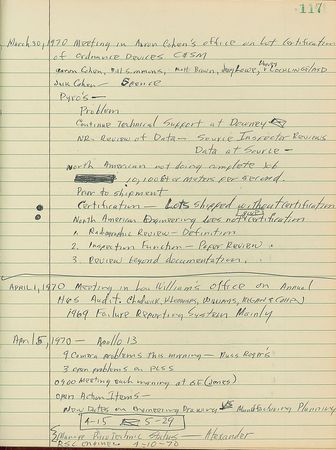 117
March 30, 1970 Meeting in Aaron Cohen's office on Lot Certification
of Ordnance Devices C&SM
Aaron Cohen, Bill Simmons, Matt Brown, Jerry Lowe,
Jack Cohen - Spence
Pyro's -
Problem
Continue Technical Support at Downey
NR - Review of Data - Source Inspector Reviews
Data at Source -
North American not doing complete job
10,100 ft or meters per second.
Prior to shipment
Certification - Lots shipped without certification
North American Engineering does not certification
1. Radiographic Review - Definition
2. Inspection Function - Paper Review.
3. Review beyond documentation.
April 1, 1970 Meeting in Lou William's Office on Annual
Hqs Audit. Chadwick, Williams,
1969 Failure Reporting System Mainly
April 5, 1970 - Apollo 13
9 Camera problems this morning - Russ
3 open problems on PLSS
0900 Meeting each morning at GE (Jones)
Open Action Items -
New Dates on Engineering Drawing VS Manufacturing Planning
4-15 5-29
Manage Pyrotechnic Status - Alexander
RSC 4-10-70